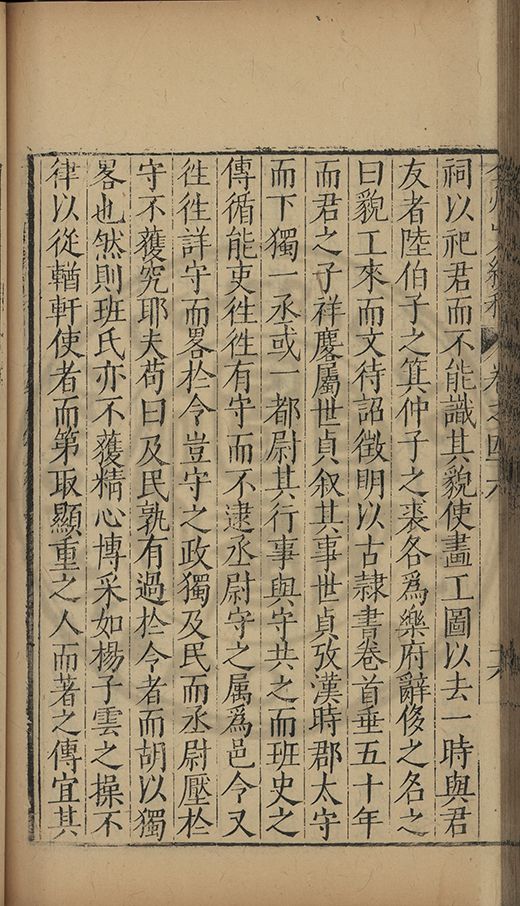 卷之四十六
十六
祠以祀君而不能識其貌使畫工圖以去一時與君
友者陸伯子之箕仲子之裘各爲樂府辭侈之名之
曰貌工來而文待詔徵明以古隸書卷首垂五十年
而君之子祥麐屬世貞叙其事世貞攷漢時郡太守
而下獨一丞或一都尉其行事與守共之而班史之
傳循能吏徃徃有守而不逮丞尉守之属爲邑令又
徃徃詳守而畧於令豈守之政獨及民而丞尉壓於
守不獲究耶夫苟曰及民孰有過於令者而胡以獨
畧也然則班氏亦不獲精心博采如楊子雲之操不
律以從輶軒使者而第取顯重之人而著之傳宜其